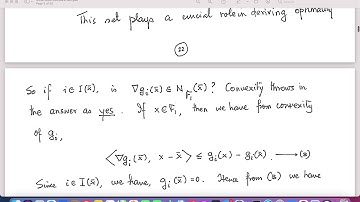 This set plays a crucial role in deriving optimality
22
So if i ∈ I(x̄), is ∇g_i(x̄) ∈ N_{F_i}(x̄)? Convexity throws in
the answer as yes. If x ∈ F_i, then we have from convexity
of g_i,
⟨∇g_i(x̄), x − x̄⟩ ≤ g_i(x) − g_i(x̄) ⟶ (B)
Since i ∈ I(x̄), we have, g_i(x̄) = 0. Hence from (B) we have